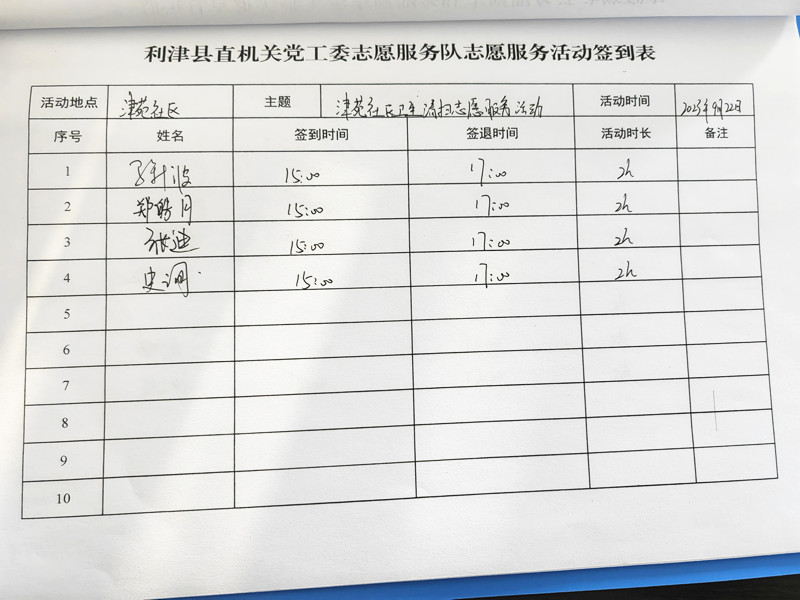 利津县直机关党工委志愿服务队志愿服务活动签到表
活动地点 津苑社区 主题 津苑社区卫生清扫志愿服务活动 活动时间 2023年9月22日
序号 姓名 签到时间 签退时间 活动时长 备注
1 15:00 17:00 2h
2 郑皓月 15:00 17:00 2h
3 张迪 15:00 17:00 2h
4 史润 15:00 17:00 2h
5
6
7
8
9
10